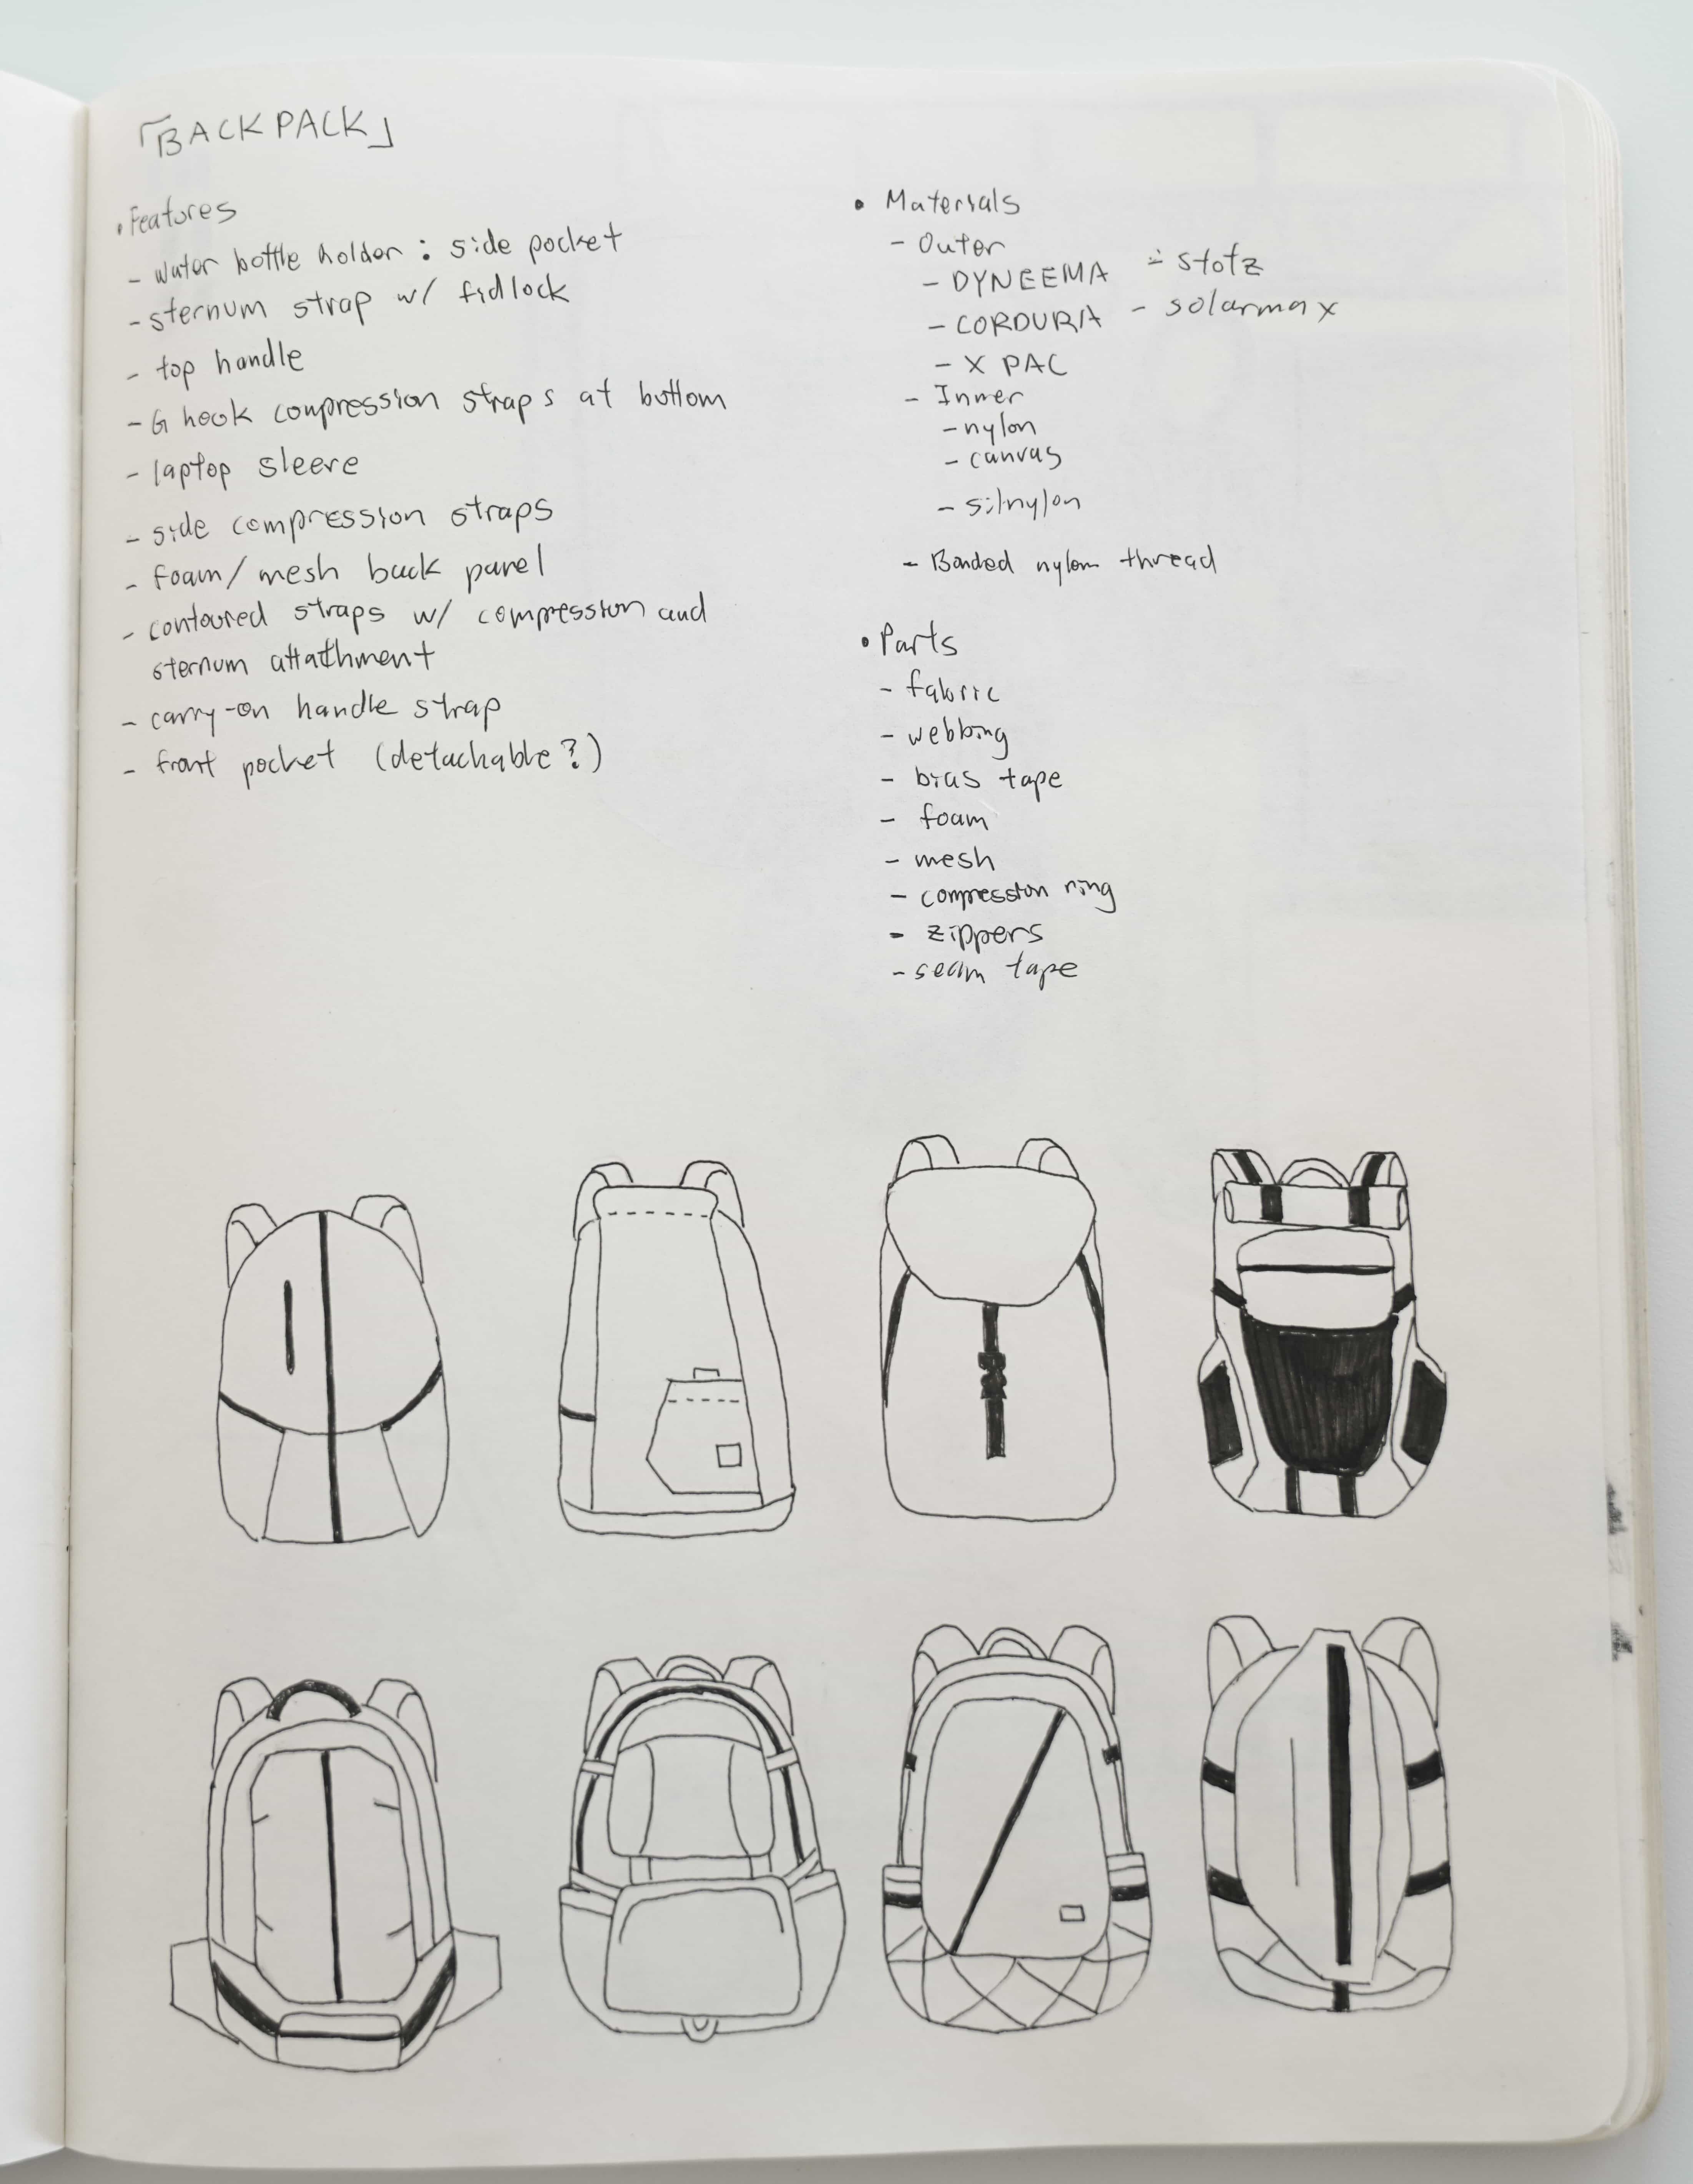 「BACKPACK」
• Features
- water bottle holder : side pocket
- sternum strap w/ fidlock
- top handle
- G hook compression straps at bottom
- laptop sleeve
- side compression straps
- foam/mesh back panel
- contoured straps w/ compression and
sternum attathment
- carry-on handle strap
- front pocket (detachable?)
• Materials
- Outer
- DYNEEMA - stotz
- CORDURA - solarmax
- X PAC
- Inner
- nylon
- canvas
- silnylon
- Bonded nylon thread
• Parts
- fabric
- webbing
- bias tape
- foam
- mesh
- compression ring
- zippers
- seam tape